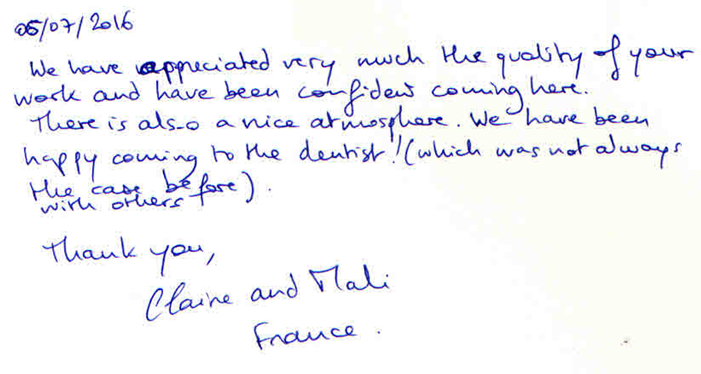 05/07/2016
We have appreciated very much the quality of your
work and have been confident coming here.
There is also a nice atmosphere. We have been
happy coming to the dentist! (which was not always
the case before).
with others
Thank you,
Claire and Mali
France.